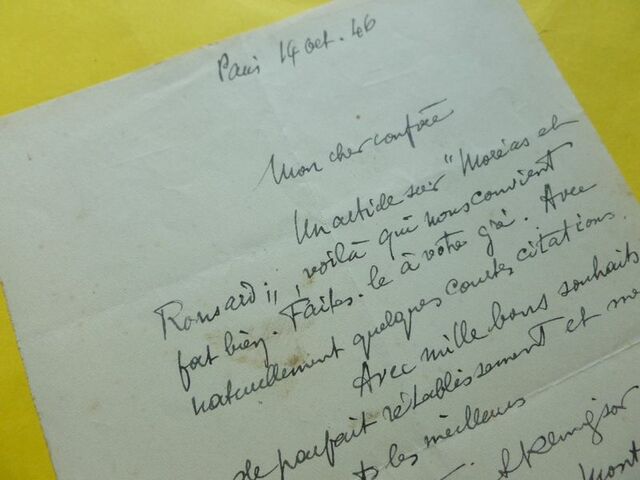 Paris 14 oct. 46
Mon cher confrère
Un article sur "Moréas et
Ronsard", voilà qui nous convient
fort bien. Faites-le à votre gré. Avec
naturellement quelques courtes citations.
Avec mille bons souhaits
de parfait rétablissement et me
les meilleurs
Mont